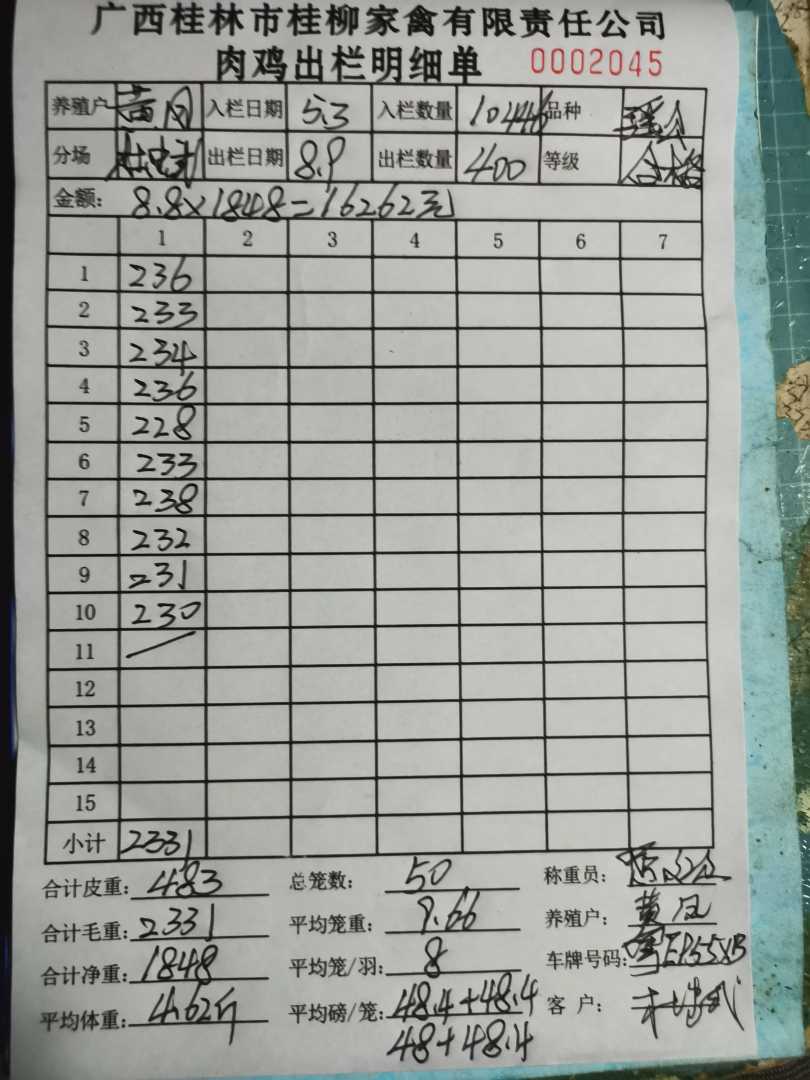 广西桂林市桂柳家禽有限责任公司
肉鸡出栏明细单 0002045
养殖户 黄凤 入栏日期 5.3 入栏数量 10446 品种 瑶鸡
分场 出栏日期 8.9 出栏数量 400 等级 合格
金额: 8.8×1848=16262元
1 2 3 4 5 6 7
1 236
2 233
3 234
4 236
5 228
6 233
7 238
8 232
9 231
10 230
11
12
13
14
15
小计 2331
合计皮重: 483 总笼数: 50 称重员:
合计毛重: 2331 平均笼重: 9.66 养殖户: 黄凤
合计净重: 1848 平均笼/羽: 8 车牌号码:
平均体重: 4.62斤 平均磅/笼: 48.4+48.4 客 户:
48+48.4